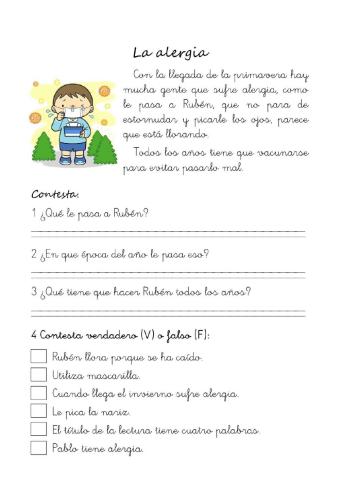 La alergia
Con la llegada de la primavera hay
mucha gente que sufre alergia, como
le pasa a Rubén, que no para de
estornudar y picarle los ojos, parece
que está llorando.
Todos los años tiene que vacunarse
para evitar pasarlo mal.
Contesta.
1 ¿Qué le pasa a Rubén?
2 ¿En que época del año le pasa eso?
3 ¿Qué tiene que hacer Rubén todos los años?
4 Contesta verdadero (V) o falso (F):
Rubén llora porque se ha caído.
Utiliza mascarilla.
Cuando llega el invierno sufre alergia.
Le pica la nariz.
El título de la lectura tiene cuatro palabras.
Pablo tiene alergia.